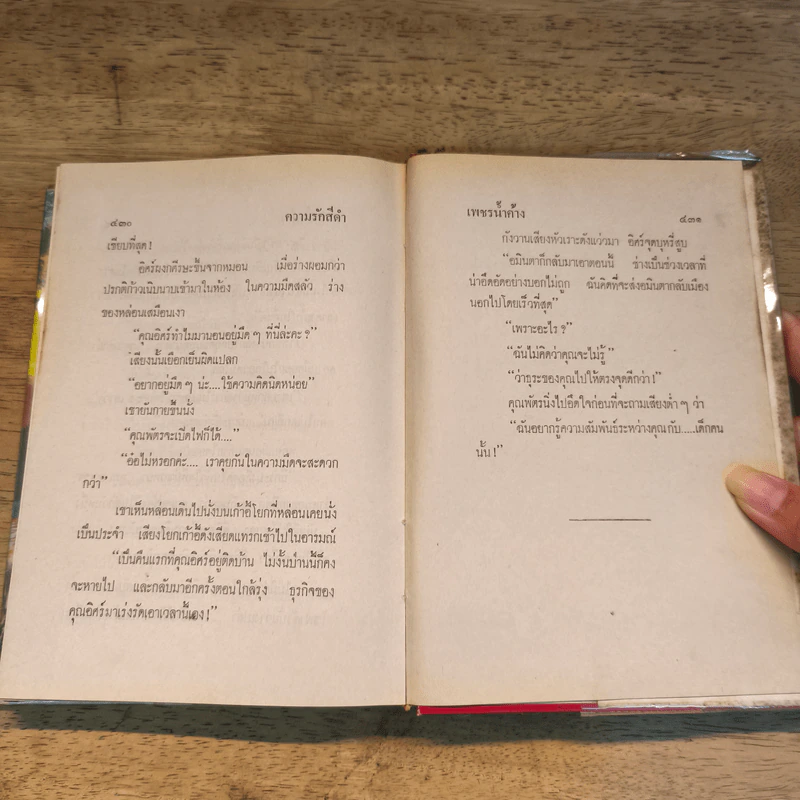 ๔๓๐
ความรักสีดำ
เงียบที่สุด!
อิศร์ผงกศีรษะขึ้นจากหมอน เมื่อร่างผอมกว่า
ปรกติก้าวเนิบนาบเข้ามาในห้อง ในความมืดสลัว ร่าง
ของหล่อนเสมือนเงา
“คุณอิศร์ทำไมมานอนอยู่มืด ๆ ที่นี่ล่ะคะ ?”
เสียงนั้นเยือกเย็นผิดแปลก
“อยากอยู่มืด ๆ น่ะ....ใช้ความคิดนิดหน่อย”
เขายันกายขึ้นนั่ง
“คุณพัตรจะเปิดไฟก็ได้....”
“อ๋อไม่หรอกค่ะ.... เราคุยกันในความมืดจะสะดวก
กว่า”
เขาเห็นหล่อนเดินไปนั่งบนเก้าอี้โยกที่หล่อนเคยนั่ง
เป็นประจำ เสียงโยกเก้าอี้ดังเสียดแทรกเข้าไปในอารมณ์
“เป็นคืนแรกที่คุณอิศร์อยู่ติดบ้าน ไม่งั้นป่านนี้ก็คง
จะหายไป และกลับมาอีกครั้งตอนใกล้รุ่ง ธุรกิจของ
คุณอิศร์มาเร่งรัดเอาเวลานี้เอง!”
เพชรน้ำค้าง
๔๓๑
กังวานเสียงหัวเราะดังแว่วมา อิศร์จุดบุหรี่สูบ
“อมินตาก็กลับมาเอาตอนนี้ ช่างเป็นช่วงเวลาที่
น่าอึดอัดอย่างบอกไม่ถูก ฉันคิดที่จะส่งอมินตากลับเมือง
นอกไปโดยเร็วที่สุด”
“เพราะอะไร ?”
“ฉันไม่คิดว่าคุณจะไม่รู้”
“ว่าธุระของคุณไปให้ตรงจุดดีกว่า!”
คุณพัตรนิ่งไปอึดใจก่อนที่จะถามเสียงต่ำ ๆ ว่า
“ฉันอยากรู้ความสัมพันธ์ระหว่างคุณกับ.....เด็กคน
นั้น!”